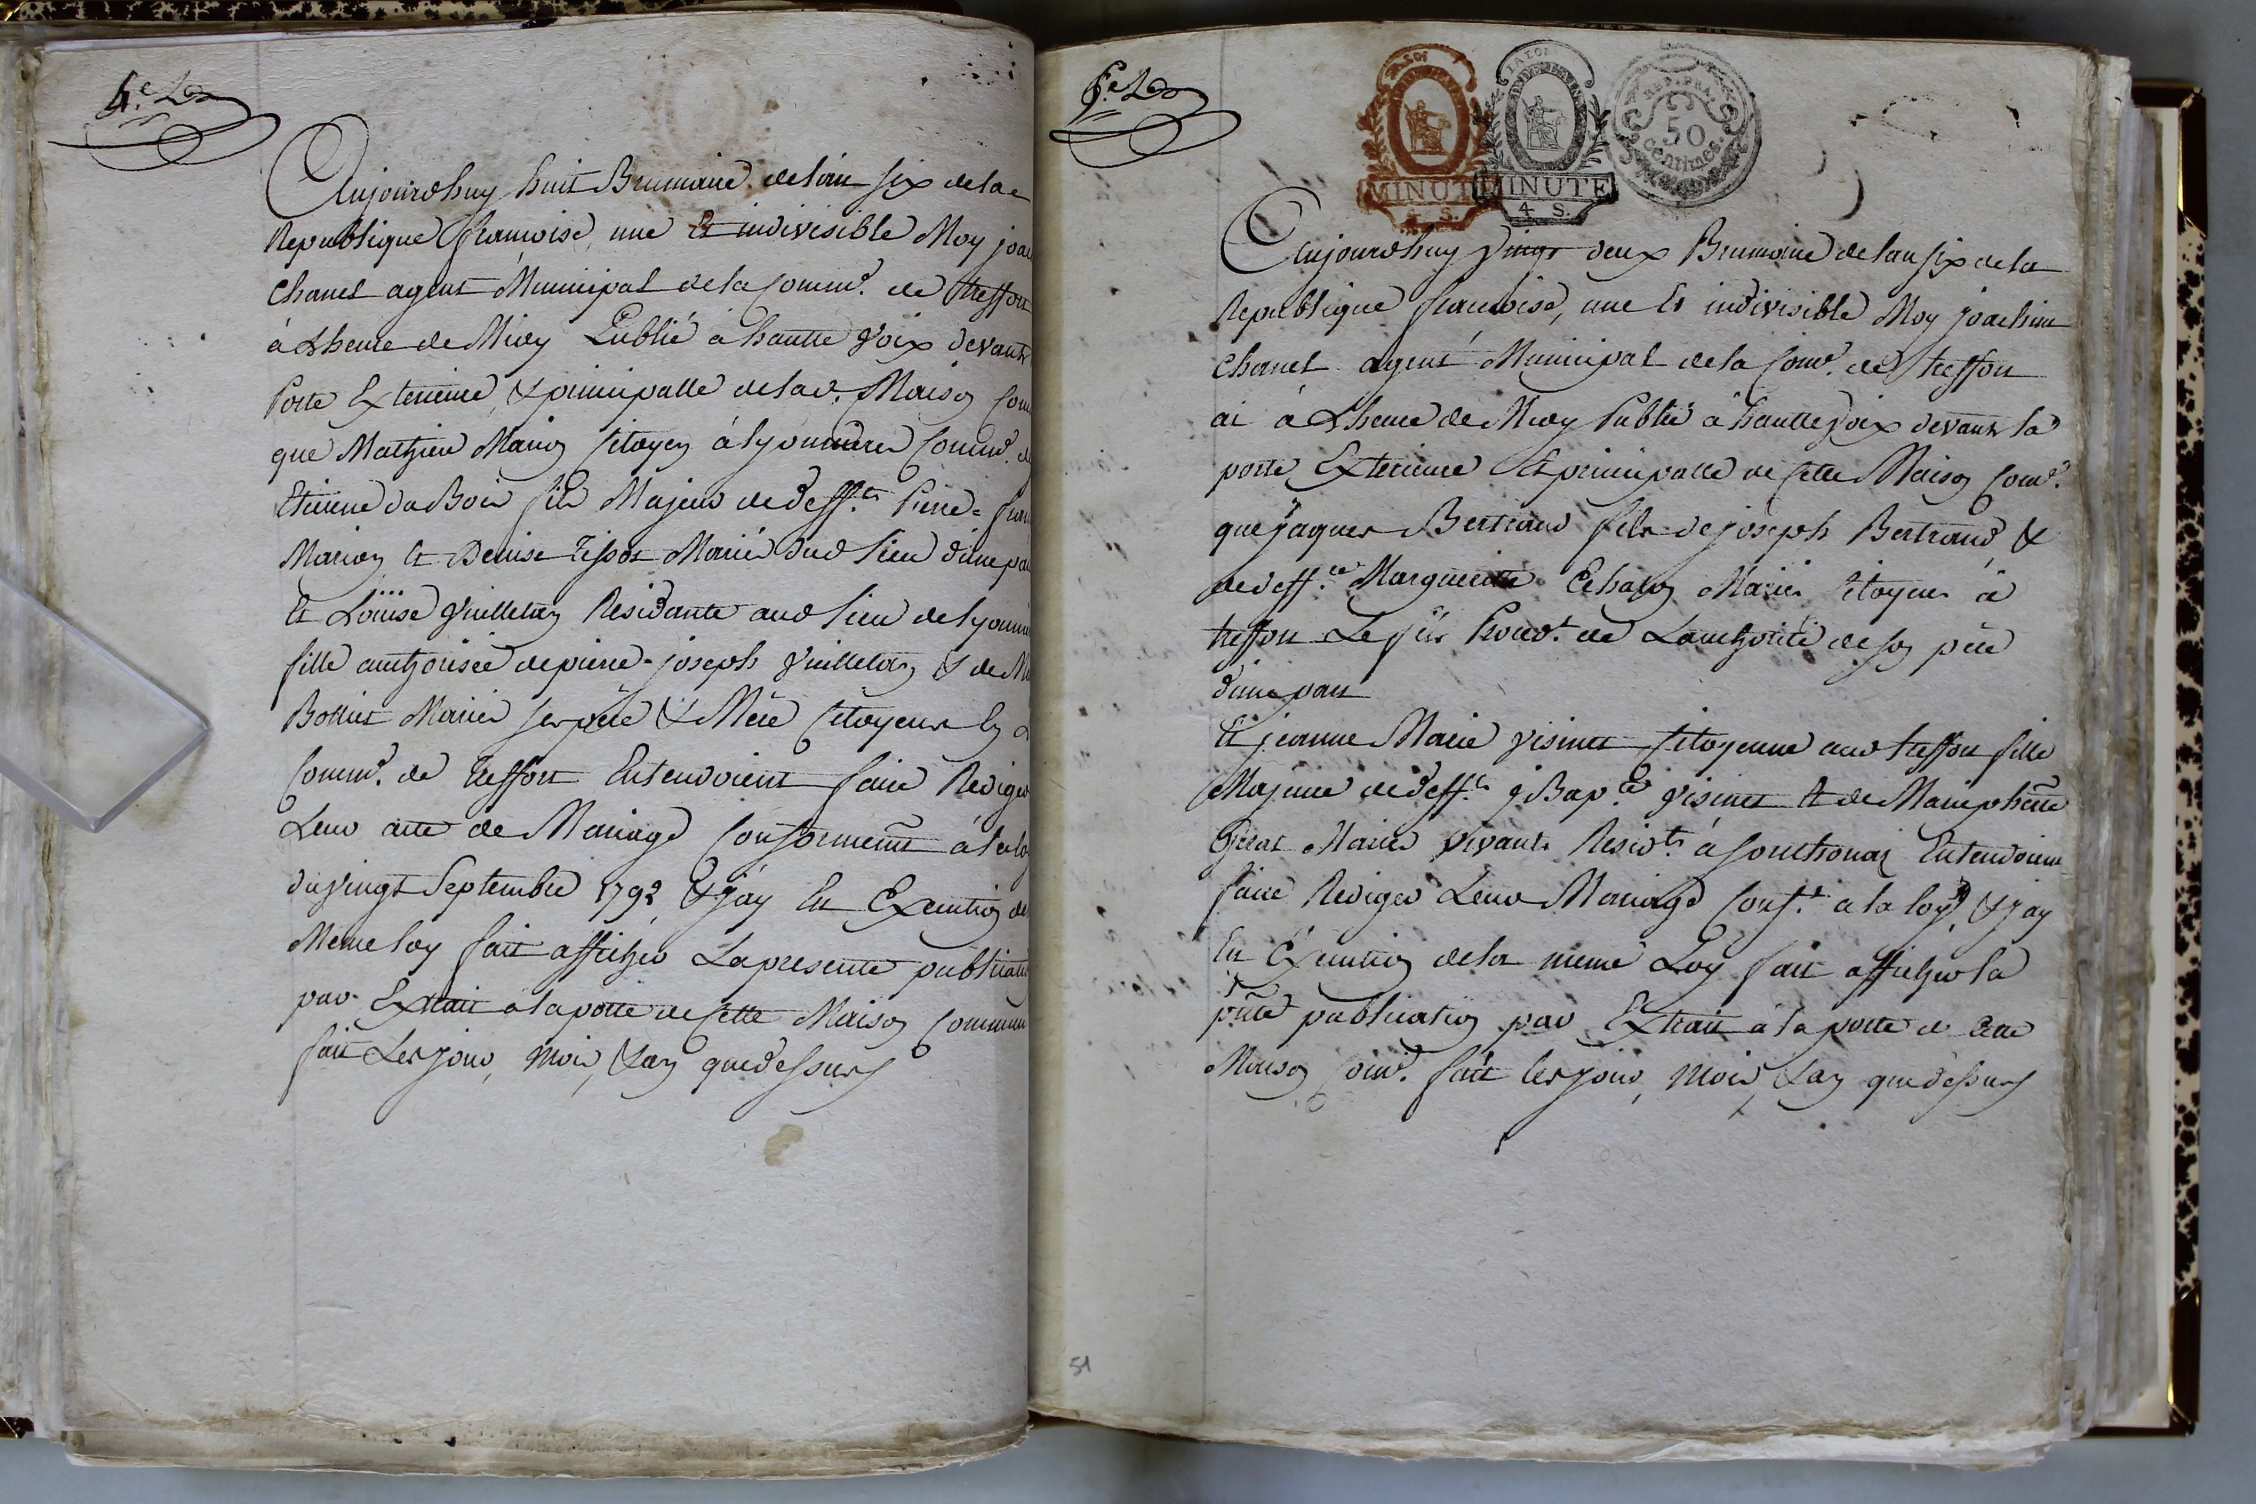 4.e
Aujourdhuy huit Brumaire de lan six de la
Republique francoise, une Et indivisible Moy
Chanel agent Municipal de la Comm.e de treffort
à Lheure de Midy Publié à hautte Voix devant
Porte Exterieure & principalle de lad. Maison
que Mathieu Marion Citoyen à lyonnieres Comm.e
Etienne du Bois fils Majeur de deff.ts Pierre=
Marion Et Denise Tissot Mariés dud lieu d'une
Et Louise Vuilleton Residante aud lieu de
fille authorisée de pierre=joseph Vuilleton & de
Mariés ses père & Mère Citoyens En
Comm.e de treffort Entendoient faire Rediger
Leur acte de Mariage Conformem̃t à la
du vingt Septembre 1792 & j'ay En Execution
Meme loy fait afficher La presente
par Extrait a la porte de Cette Maison
fait Les jour, mois, & an que dessus
51
MINUTE
4. S.
MINUTE
4 S.
REP. FRA.
50
centimes
Aujourdhuy Vingt deux Brumaire de lan six de la
Republique francoise, une Et indivisible Moy joachim
Chanel agent Municipal de la Com.e de treffort
ai à Lheure de Midy Publié à hautte Voix devant la
porte Exterieure Et principalle de Cette Maison Com.e
que Jaques Bertrand fils de joseph Bertrand &
de deff.te Marguerite Mariés Citoyens à
treffort Le fils de Lauthorité de son père
d'une part
Et jeanne Marie Visinet Citoyenne aud treffort fille
Majeure de deff.t j Bap.te Visinet Et de
Mariés Vivants Resid.ts à Entendoient
faire Rediger Leur Mariage Conf.t a la loy, & j'ay
En Execution de la meme Loy fait afficher la
pñte publication par Extrait à la porte de Cette
Maison Com.e fait les jour, mois, & an que dessus